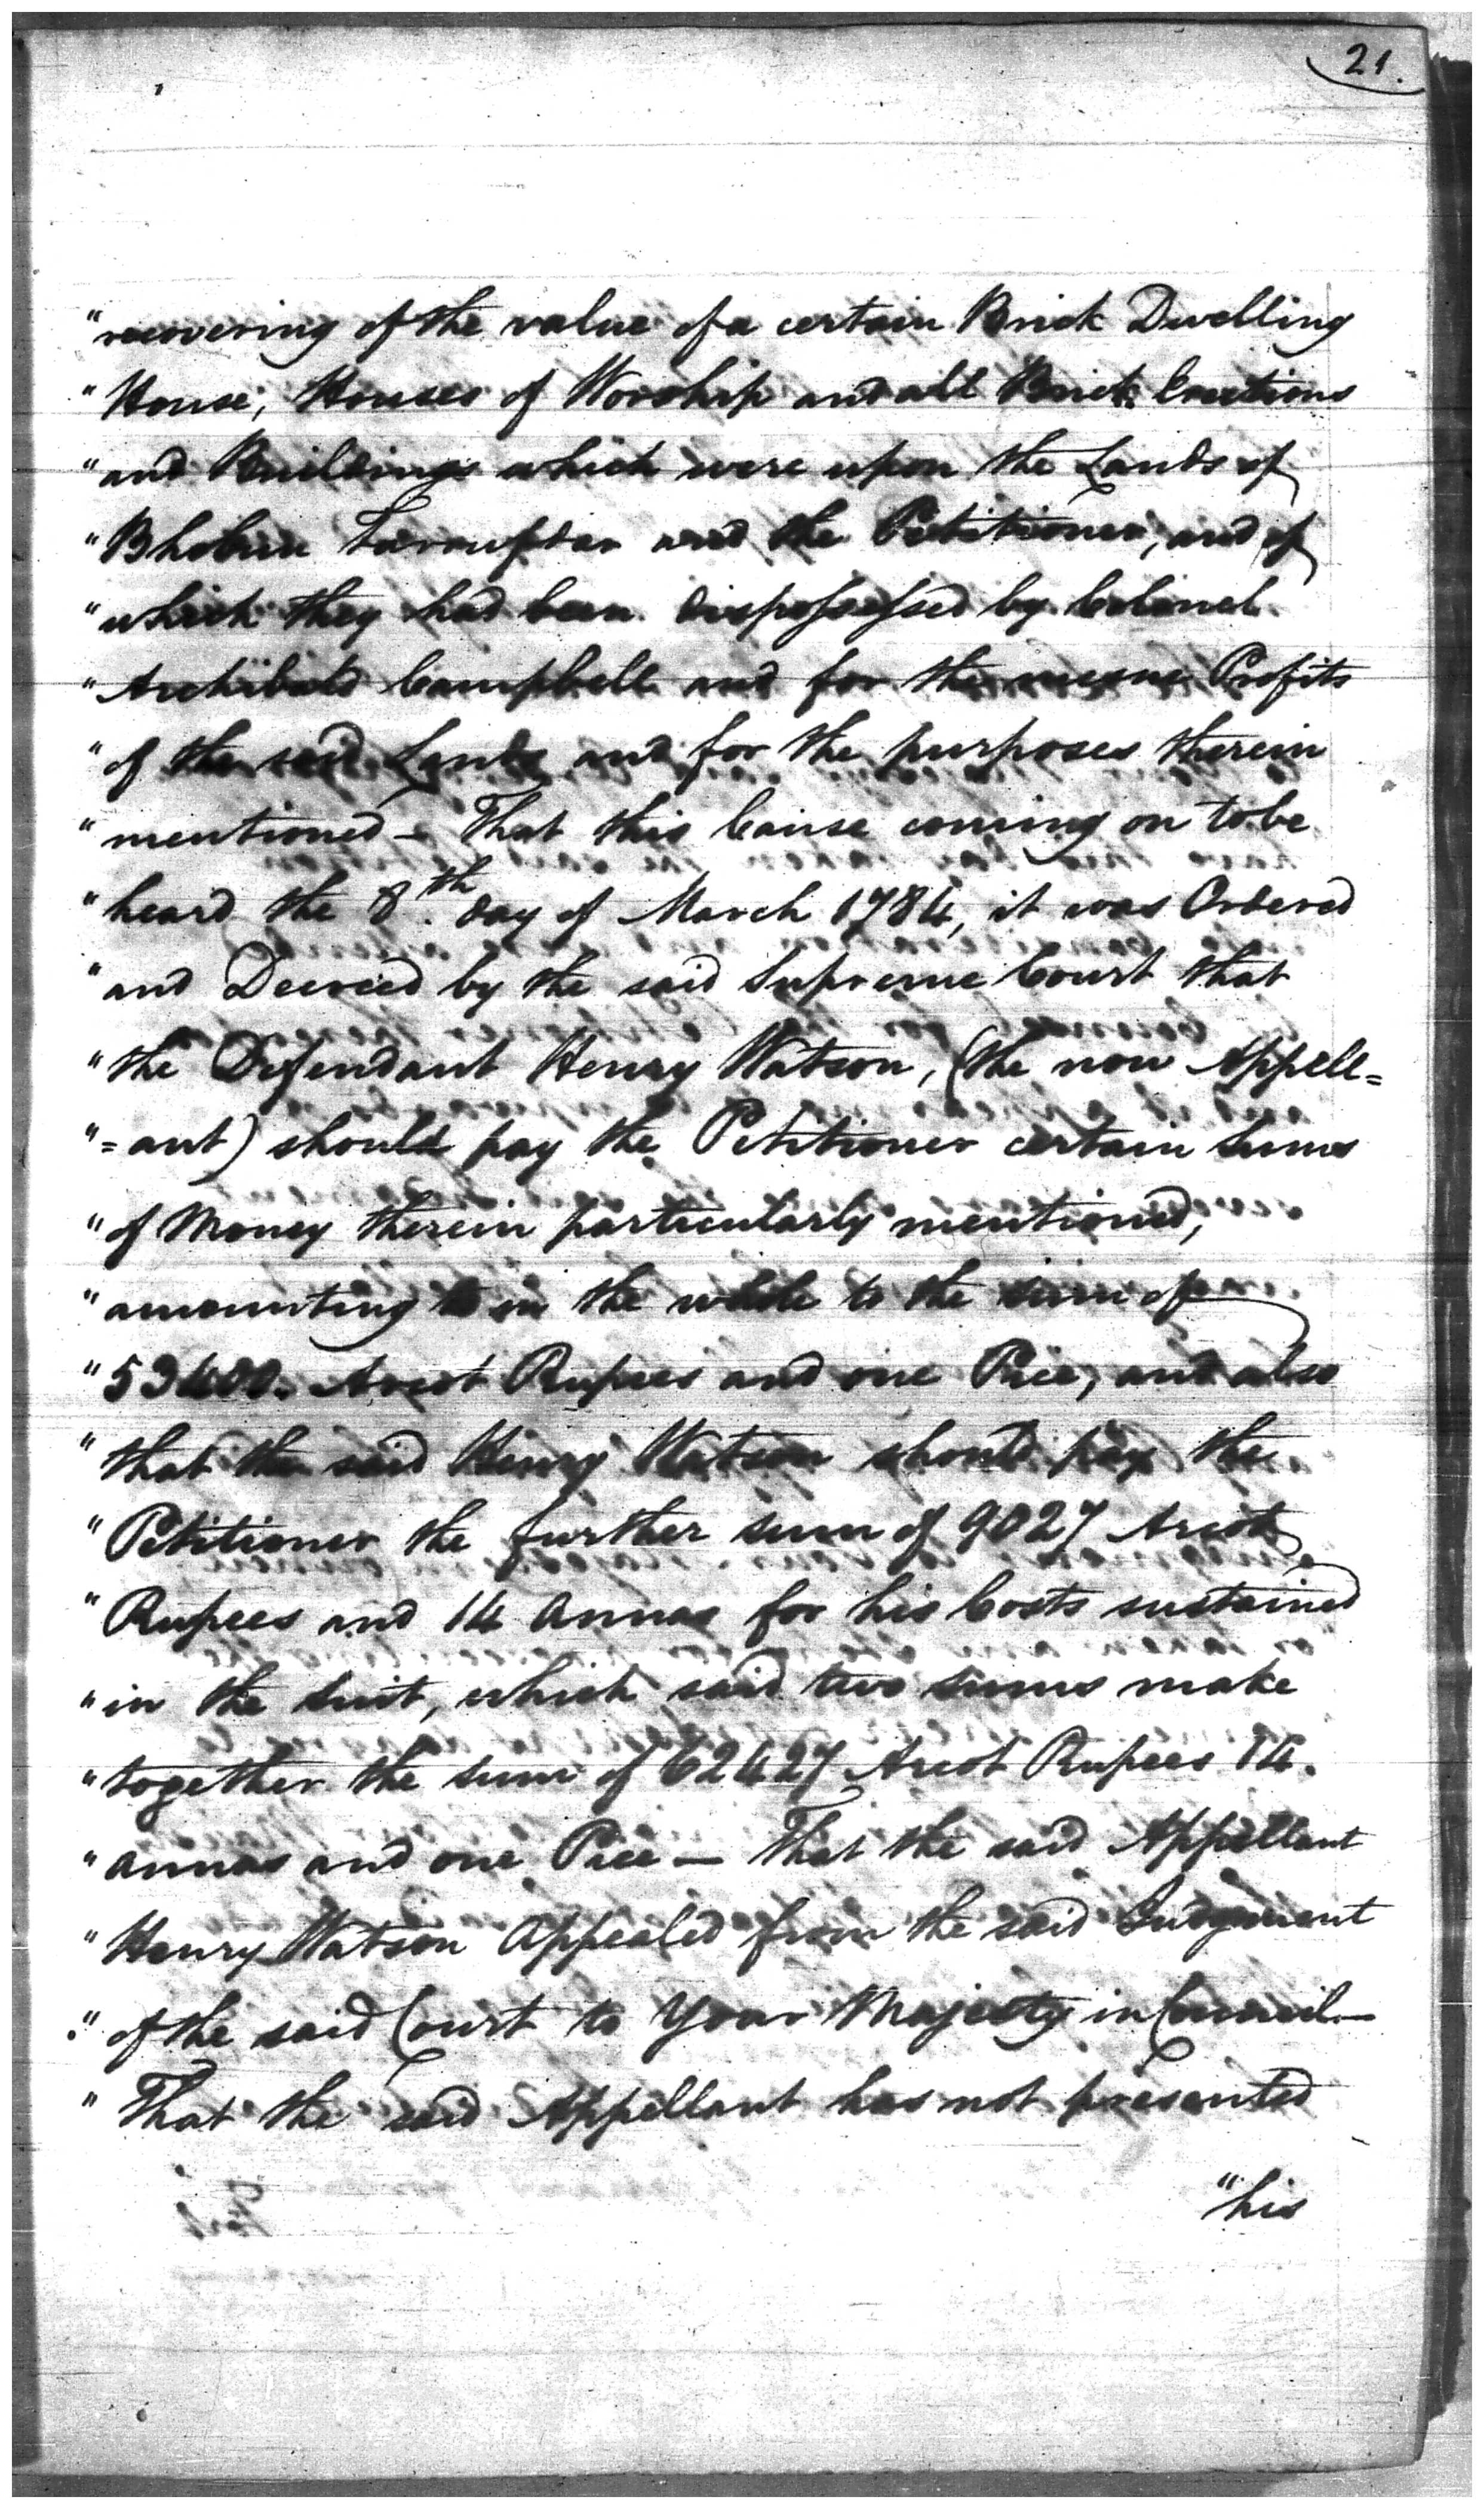 21.
"recovering of the value of a certain Brick Dwelling
"House, Houses of Worship and all Brick Erections
"and Buildings which were upon the Lands of
"Bhobun and the Petitioner, and of
"which they had been dispossessed by Colonel
"Archibald Campbell and for the mesne Profits
"of the said Lands and for the purposes therein
"mentioned – That this Cause coming on to be
"heard the 8th. day of March 1784, it was Ordered
"and Decreed by the said Supreme Court that
"the Defendant Henry Watson, (the now Appell=
"=ant) should pay the Petitioner certain Sums
"of Money therein particularly mentioned,
"amounting to in the whole to the sum of
"53400. Arcot Rupees and one Pice, and also
"that the said Henry Watson should pay the
"Petitioner the further sum of 9027 Arcot
"Rupees and 14 Annas for his Costs sustained
"in the Suit, which said two sums make
"together the sum of 62427 Arcot Rupees 14.
"annas and one Pice – That the said Appellant
"Henry Watson Appealed from the said Judgment
"of the said Court to Your Majesty in Council –
"That the said Appellant has not presented
"his